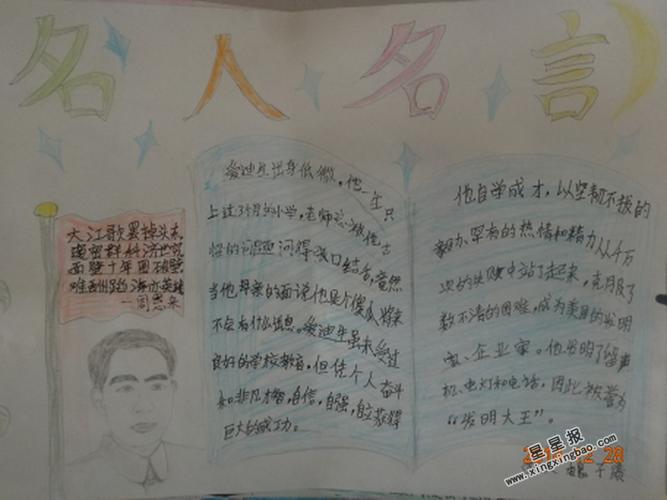 名人名言
大江歌罢掉头东
邃密群科济世穷
面壁十年图破壁
难酬蹈海亦英雄
—周恩来
爱迪生出身低微，他一生只
上过3个月的小学，老师总被他古
怪的问题问得张口结舌，竟然
当他母亲的面说他是个傻瓜将来
不会有什么出息。爱迪生虽未受过
良好的学校教育，但凭个人奋斗
和非凡才智，自信，自强，自立获得
巨大的成功。
他自学成才，以坚韧不拔的
毅力、罕有的热情和精力从千万
次的失败中站了起来，克服了
数不清的困难，成为美国的发明
家、企业家。他发明了留声
机、电灯和电话，因此被誉为
“发明大王”。
星星报
www.xingxingbao.com